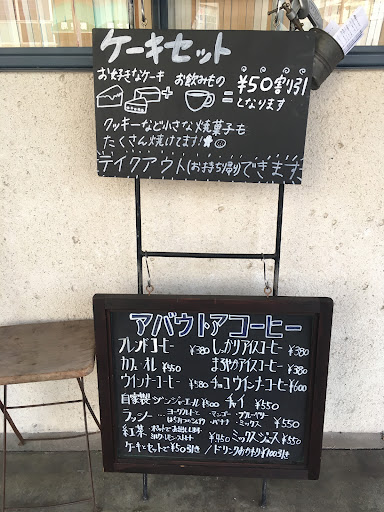 ケーキセット
お好きなケーキ お飲みもの
+ = ¥50割引
となります
クッキーなど小さな焼菓子も
たくさん焼けてます!
テイクアウト(お持ち帰り)できます
アバウトアコーヒー
ブレンドコーヒー ¥380 しっかりアイスコーヒー ¥380
カフェオレ ¥450 まろやかアイスコーヒー ¥380
ウインナーコーヒー ¥580 チョコウインナーコーヒー ¥600
自家製ジンジャーエール ¥500 チャイ ¥550
ラッシー … ヨーグルトと ・マンゴー・ブルーベリー
はちみつ ・バナナ・ミックス ¥550
紅茶 ・ポットでお出しします
ミルク・レモン・ストレート ¥450 ミックスジュース ¥550
ケーキとセットで¥50引き / ドリンクおかわり¥100引き